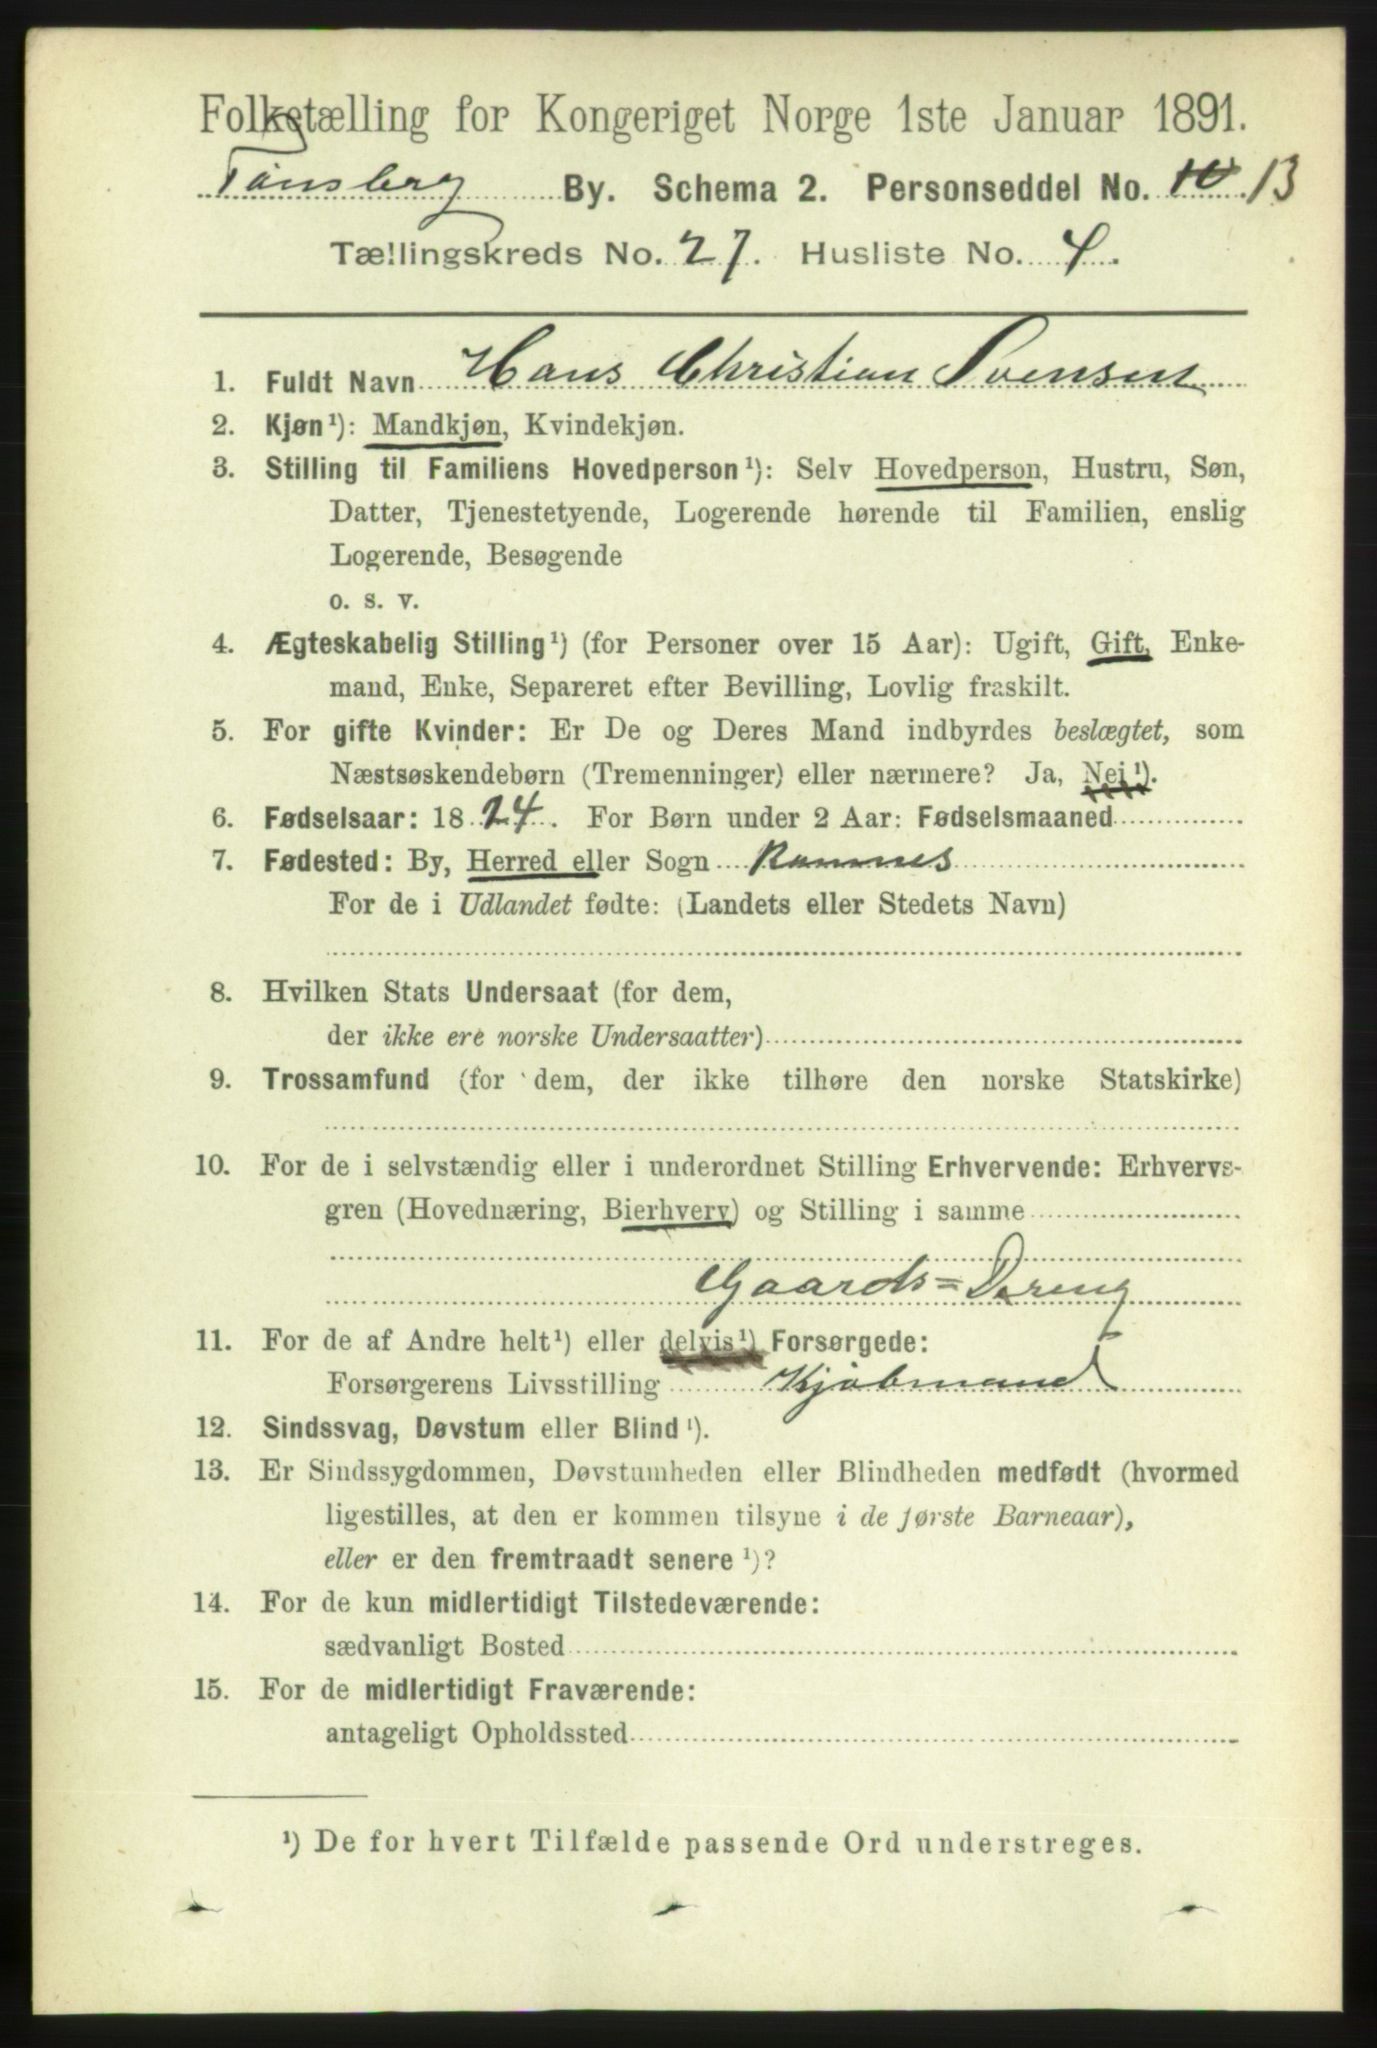 Folketælling for Kongeriget Norge 1ste Januar 1891.
Tønsberg By. Schema 2. Personseddel No. 10. 13
Tællingskreds No. 27. Husliste No. 4.
1. Fuldt Navn Hans Christian Svensen
2. Kjøn¹): Mandkjøn, Kvindekjøn.
3. Stilling til Familiens Hovedperson¹): Selv Hovedperson, Hustru, Søn,
Datter, Tjenestetyende, Logerende hørende til Familien, enslig
Logerende, Besøgende
o. s. v.
4. Ægteskabelig Stilling¹) (for Personer over 15 Aar): Ugift, Gift, Enke-
mand, Enke, Separeret efter Bevilling, Lovlig fraskilt.
5. For gifte Kvinder: Er De og Deres Mand indbyrdes beslægtet, som
Næstsøskendebørn (Tremenninger) eller nærmere? Ja, Nei¹).
6. Fødselsaar: 1824. For Børn under 2 Aar: Fødselsmaaned
7. Fødested: By, Herred eller Sogn Ramnes
For de i Udlandet fødte: (Landets eller Stedets Navn)
8. Hvilken Stats Undersaat (for dem,
der ikke ere norske Undersaatter)
9. Trossamfund (for dem, der ikke tilhøre den norske Statskirke)
10. For de i selvstændig eller i underordnet Stilling Erhvervende: Erhvervs-
gren (Hovednæring, Bierhverv) og Stilling i samme
Gaards=Dreng
11. For de af Andre helt¹) eller delvis¹) Forsørgede:
Forsørgerens Livsstilling Kjøbmand
12. Sindssvag, Døvstum eller Blind¹).
13. Er Sindssygdommen, Døvstumheden eller Blindheden medfødt (hvormed
ligestilles, at den er kommen tilsyne i de første Barneaar),
eller er den fremtraadt senere¹)?
14. For de kun midlertidigt Tilstedeværende:
sædvanligt Bosted
15. For de midlertidigt Fraværende:
antageligt Opholdssted
¹) De for hvert Tilfælde passende Ord understreges.